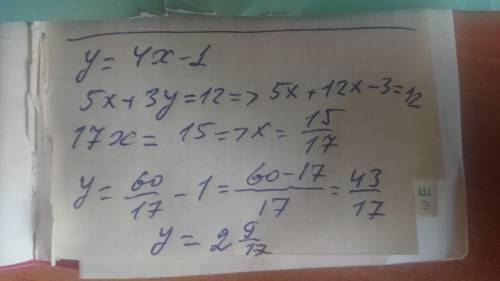 y = 4x-1
5x+3y=12=> 5x+12x-3=12
17x= 15=>x= 15/17
y= 60/17 -1= 60-17/17 = 43/17
y= 2 9/17
ш
3